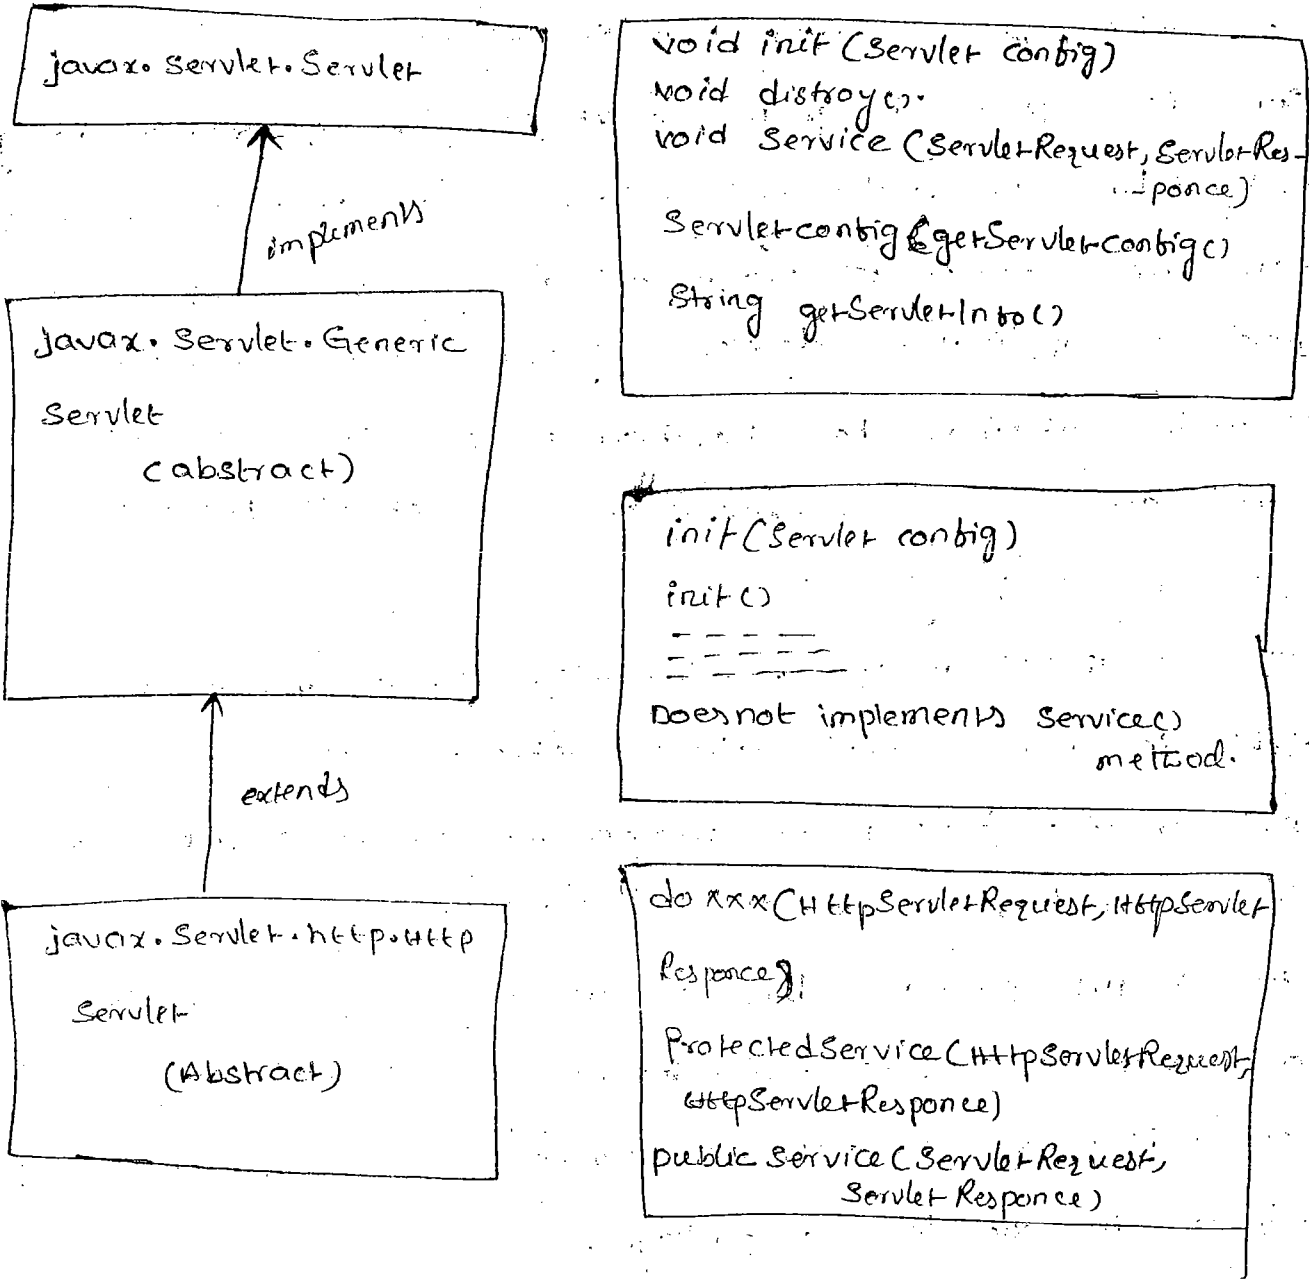 javax. Servlet. Servlet
implements
javax. Servlet. Generic
Servlet
(abstract)
extends
javax. Servlet. http. Http
Servlet
(Abstract)
void init (Servlet config)
void distroy().
void Service (ServletRequest, ServletRes-
-ponce)
Servletconfig getServletConfig()
String getServletInfo()
init (Servlet config)
init ()
Doesnot implements Service()
method.
do xxx (HttpServletRequest, HttpServlet
Responce);
Protected Service (HttpServletRequest,
HttpServletResponce)
public Service (ServletRequest,
Servlet Responce)